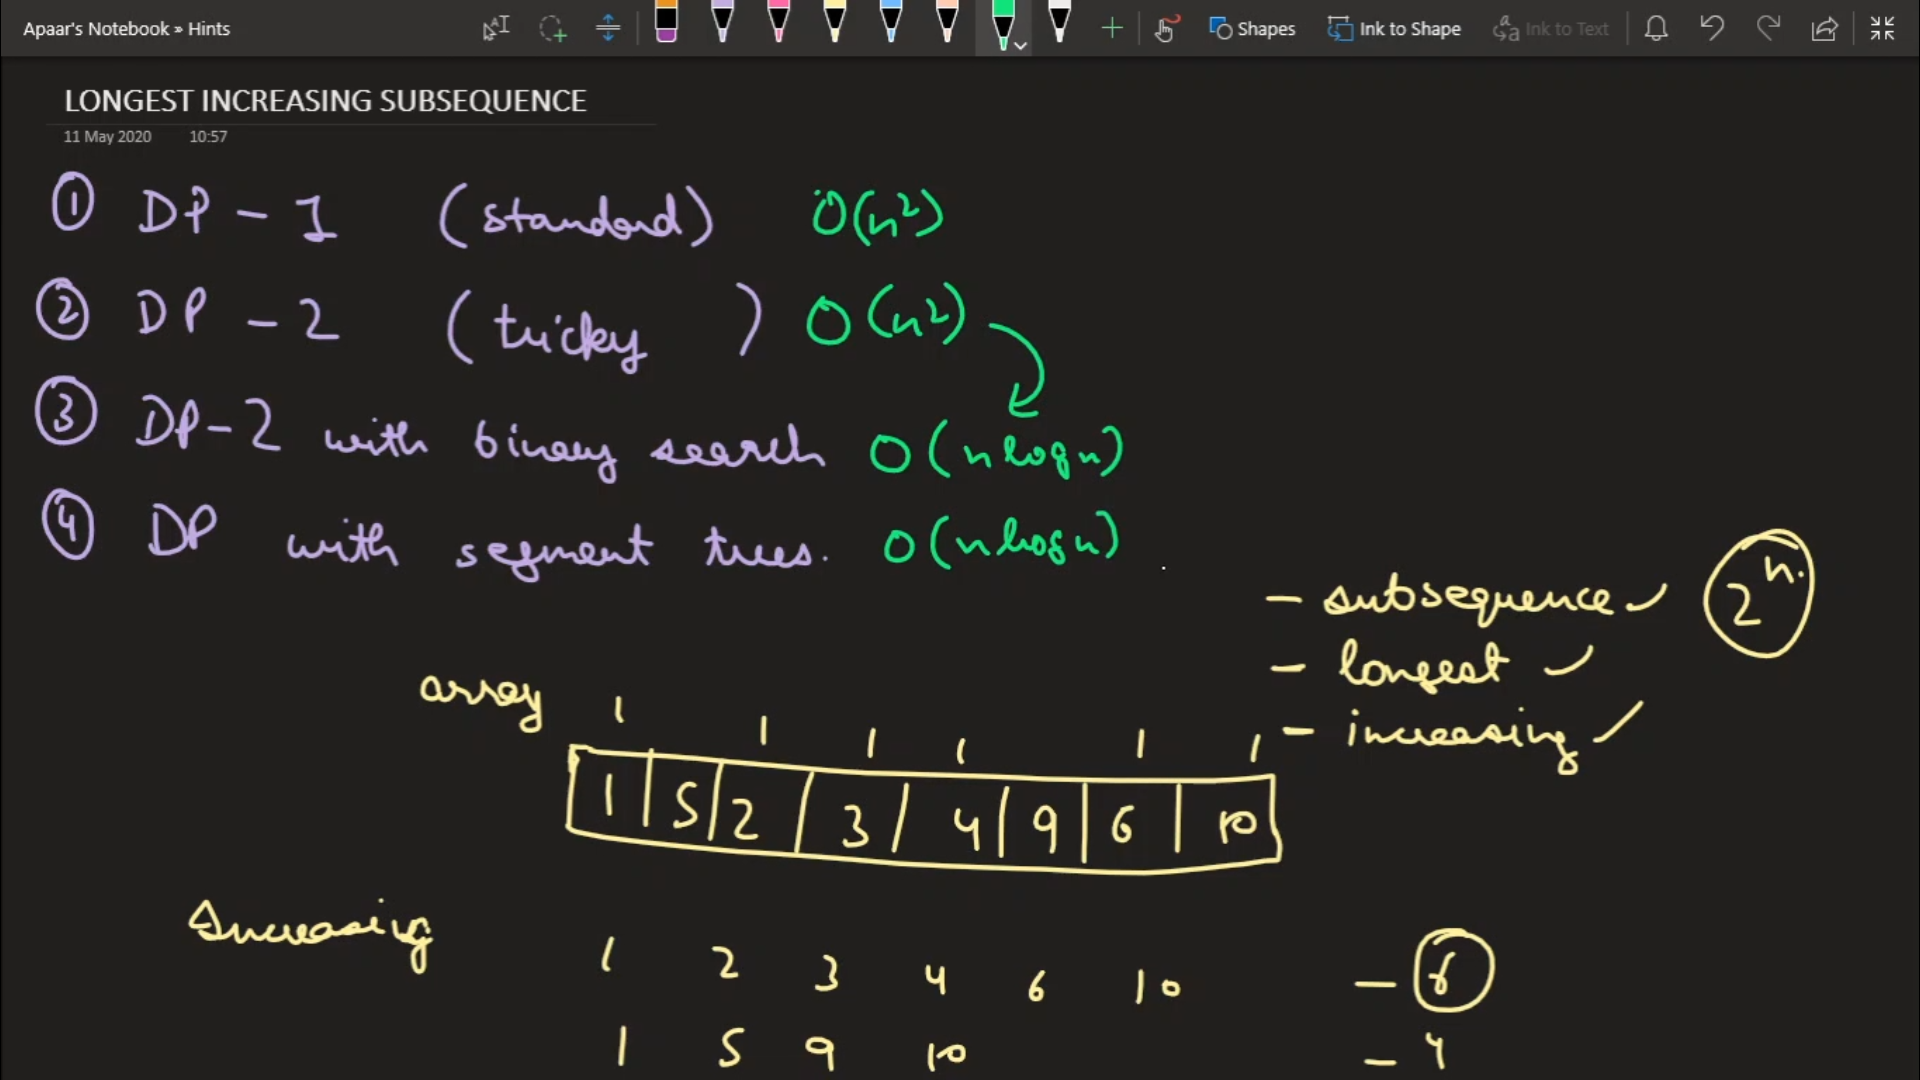 Apaar's Notebook » Hints
Shapes
Ink to Shape
Ink to Text
LONGEST INCREASING SUBSEQUENCE
11 May 2020 10:57
① DP - 1 (standard) O(n²)
② DP - 2 (tricky ) O(n²)
③ DP-2 with binary search O(nlogn)
④ DP with segment trees. O(nlogn)
- subsequence ✓ 2ⁿ.
- longest ✓
- increasing ✓
array
1 5 2 3 4 9 6 10
Increasing
1 2 3 4 6 10 - 6
1 5 9 10 - 4